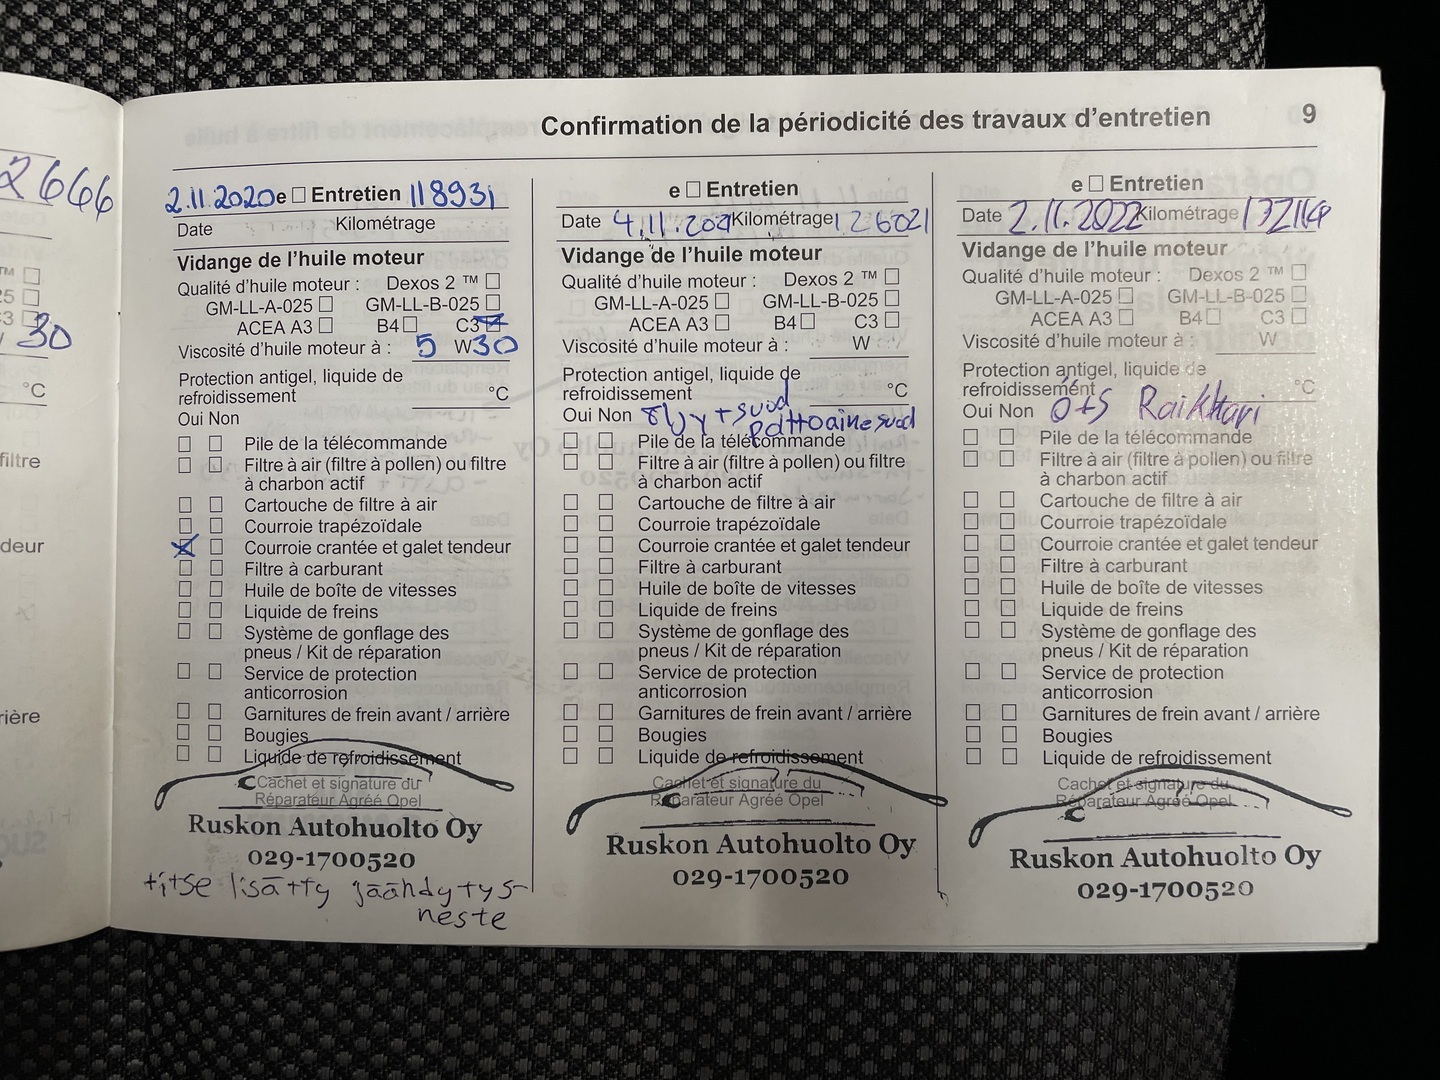 Confirmation de la périodicité des travaux d'entretien 9
2666
TM
30
°C
filtre
deur
rière
2.11.2020 e Entretien 118931
Date Kilométrage
Vidange de l'huile moteur
Qualité d'huile moteur : Dexos 2 ™
GM-LL-A-025 GM-LL-B-025
ACEA A3 B4 C3
Viscosité d'huile moteur à : 5 W30
Protection antigel, liquide de
refroidissement °C
Oui Non
Pile de la télécommande
Filtre à air (filtre à pollen) ou filtre
à charbon actif
Cartouche de filtre à air
Courroie trapézoïdale
Courroie crantée et galet tendeur
Filtre à carburant
Huile de boîte de vitesses
Liquide de freins
Système de gonflage des
pneus / Kit de réparation
Service de protection
anticorrosion
Garnitures de frein avant / arrière
Bougies
Liquide de refroidissement
Cachet et signature du
Réparateur Agréé Opel
Ruskon Autohuolto Oy
029-1700520
itse lisätty jäähdytys-
neste
e Entretien
Date 4.11.2021 Kilométrage 126021
Vidange de l'huile moteur
Qualité d'huile moteur : Dexos 2 ™
GM-LL-A-025 GM-LL-B-025
ACEA A3 B4 C3
Viscosité d'huile moteur à : W
Protection antigel, liquide de
refroidissement °C
Oui Non öljy+suod
Pile de la télécommande
Filtre à air (filtre à pollen) ou filtre
à charbon actif
Cartouche de filtre à air
Courroie trapézoïdale
Courroie crantée et galet tendeur
Filtre à carburant
Huile de boîte de vitesses
Liquide de freins
Système de gonflage des
pneus / Kit de réparation
Service de protection
anticorrosion
Garnitures de frein avant / arrière
Bougies
Liquide de refroidissement
Cachet et signature du
Réparateur Agréé Opel
Ruskon Autohuolto Oy
029-1700520
e Entretien
Date 2.11.2022 Kilométrage
Vidange de l'huile moteur
Qualité d'huile moteur : Dexos 2 ™
GM-LL-A-025 GM-LL-B-025
ACEA A3 B4 C3
Viscosité d'huile moteur à : W
Protection antigel, liquide de
refroidissement °C
Oui Non ö+s
Pile de la télécommande
Filtre à air (filtre à pollen) ou filtre
à charbon actif
Cartouche de filtre à air
Courroie trapézoïdale
Courroie crantée et galet tendeur
Filtre à carburant
Huile de boîte de vitesses
Liquide de freins
Système de gonflage des
pneus / Kit de réparation
Service de protection
anticorrosion
Garnitures de frein avant / arrière
Bougies
Liquide de refroidissement
Cachet et signature du
Réparateur Agréé Opel
Ruskon Autohuolto Oy
029-1700520